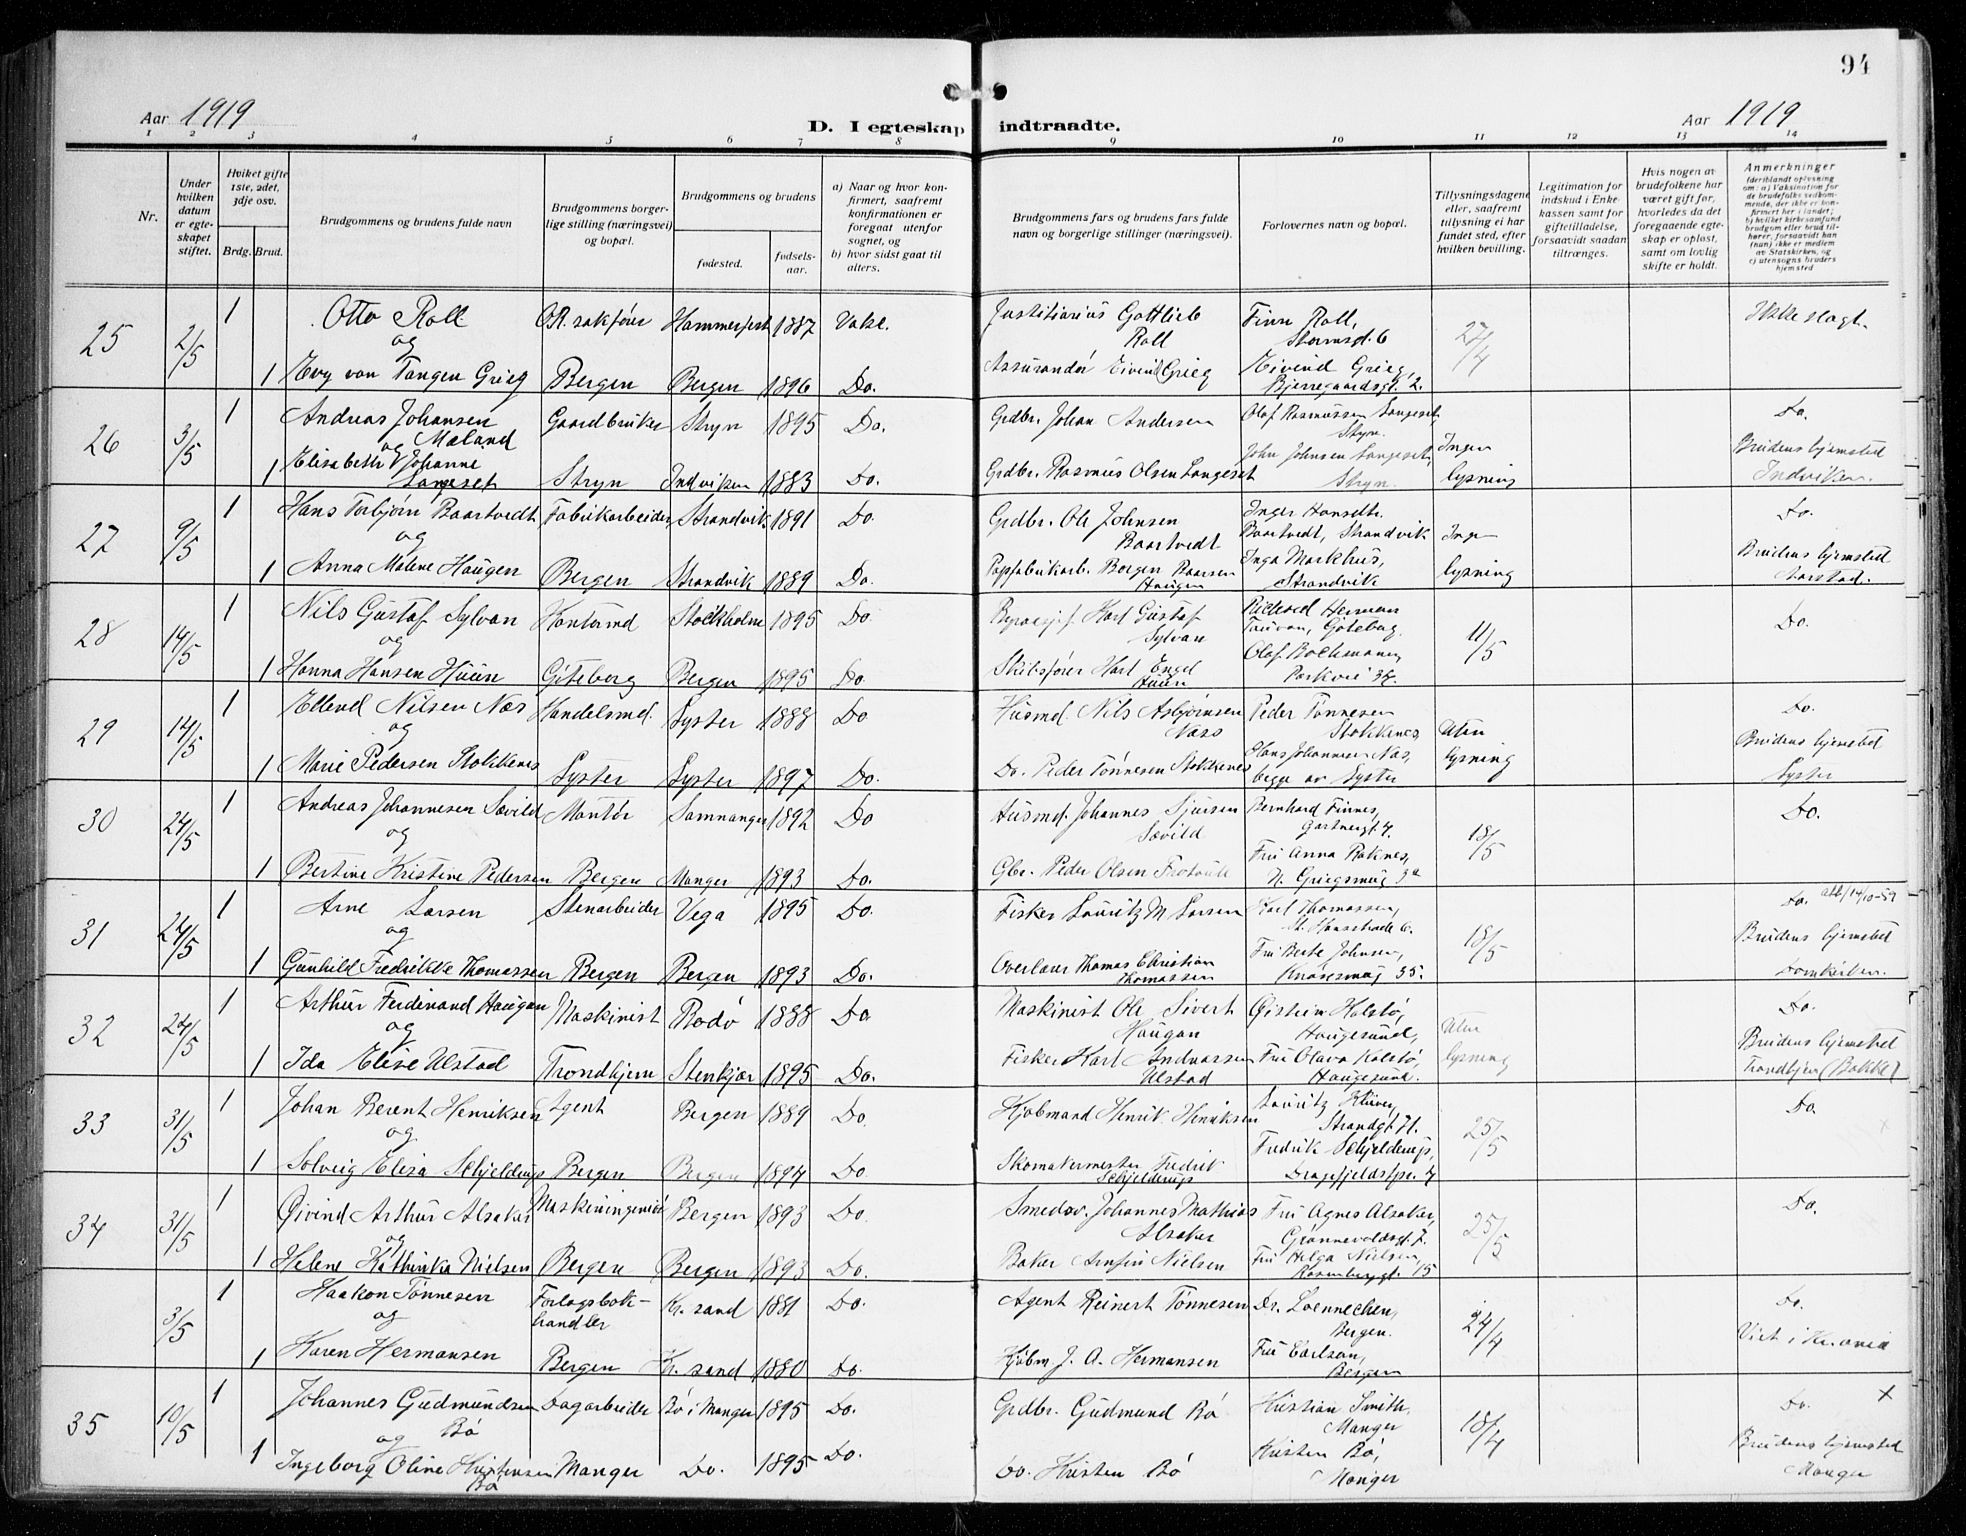 94
Aar 1919
D. I egteskap indtraadte.
Aar 1919
1 2 3 4 5 6 7 8 9 10 11 12 13 14
Nr.
Under hvilken datum er egteskapet stiftet.
Hviket gifte 1ste, 2det, 3dje osv.
Brdg. Brud.
Brudgommens og brudens fulde navn
Brudgommens borgerlige stilling (næringsvei) og bopæl.
Brudgommens og brudens
fødested.
fødselsaar.
a) Naar og hvor konfirmert, saafremt konfirmationen er foregaat utenfor sognet, og
b) hvor sidst gaat til alters.
Brudgommens fars og brudens fars fulde navn og borgerlige stillinger (næringsvei).
Forlovernes navn og bopæl.
Tillysningsdagene eller, saafremt tillysning ei har fundet sted, efter hvilken bevilling.
Legitimation for indskud i Enkekassen samt for giftetilladelse, forsaavidt saadan tiltrænges.
Hvis nogen av brudefolkene har været gift før, hvorledes da det foregaaende egteskap er opløst, samt om lovlig skifte er holdt.
Anmerkninger (deriblandt oplysning om: a) Vaksination for de brudefolks vedkommende, der ikke er konfirmert her i landet; b) hvilket kirkesamfund brudgom eller brud tilhører, forsaavidt han (hun) ikke er medlem av Statskirken, og c) utensogns bruders hjemsted
25 2/5 1 Otto Roll OR. sakfører Hammerfest 1887 Vaks. Justitiarius Gottlieb Roll Finn Roll, Stormsgt. 6 27/4 Ikke slegt.
og
1 Evy von Tangen Grieg Bergen Bergen 1896 Do. Assurandør Eivind Grieg Eivind Grieg, Bjerregaardsgt. 2.
26 3/5 1 Andreas Johansen Mæland Gaardbruker Stryn 1895 Do. Grdbr. Johan Andersen Olaf Rasmussen Langeset, Stryn. Ingen Do.
og
1 Elisabeth Johanne Langeset Stryn Indviken 1883 Do. Grdbr. Rasmus Olsen Langeset John Johnsen Langeset, Stryn. lysning Brudens hjemsted Indviken.
27 9/5 1 Hans Torbjørn Baartvedt Fabrikarbeider Strandvik 1891 Do. Grdbr. Ole Johnsen Baartvedt Inger Hansdtr. Baartvedt, Strandvik Ingen Do.
og
1 Anna Malene Haugen Bergen Strandvik 1889 Do. Papfabrikarb. Børgen Baarsen Haugen Inga Markhus, Strandvik lysning Brudens hjemsted Aarstad.
28 14/5 1 Nils Gustaf Sylvan Kontormd Stockholm 1895 Do. Karl Gustaf Sylvan Richard Herman Göteborg. 11/5 Do.
og
1 Hanna Hansen Huun Göteborg Bergen 1895 Do. Skibsfører Karl Engel Huun Olaf Bockmann, Parkvei 34.
29 14/5 1 Ellend Nilsen Næs Handelsmd. Lyster 1888 Do Husmd. Nils Asbjørnsen Næss Peder Tønnesen Stokkenes, Uten Do.
og
1 Marie Pedersen Stokkenes Lyster Lyster 1897 Do. Do. Peder Tønnesen Stokkenes Hans Johannesen Næs, begge av Lyster lysning Brudens hjemsted Lyster
30 24/5 1 Andreas Johannesen Sævild Montør Samnanger 1892 Do Husmd. Johannes Sjursen Sævild Bernhard Finnes, Gartnergt 4. 18/5 Do.
og
1 Bertine Kristine Pedersen Bergen Manger 1893 Do. Gbr. Peder Olsen Fru Anna Raknes, N. Griegsmug 3a
31 24/5 1 Arne Larsen Stenarbeider Vega 1895 Do. Fisker Lauritz M. Larsen Karl Thomassen, St. Hansstræde 6. 18/5 Do. att. 14/10-59
og
1 Gunhild Fredrikke Thomassen Bergen Bergen 1893 Do. Overlærer Thomas Christian Thomassen Fru Berte Johnsen, Knøsesmug 35. Brudens hjemsted Domkirken.
32 24/5 1 Arthur Ferdinand Haugan Maskinist Rødø 1888 Do Maskinist Ole Sivert Haugan Øistein Kalstø, Haugesund, Uten Do.
og
1 Ida Elise Ulstad Trondhjem Stenkjær 1895 Do. Fisker Karl Andreassen Ulstad Fru Olava Kalstø, Haugesund. lysning Brudens hjemsted Trondhjem (Bakke)
33 31/5 1 Johan Berent Henriksen Agent Bergen 1889 Do. Kjøbmand Henrik Henriksen Lauritz Klüver, Strandgt 71. 25/5 Do. x
og
1 Solveig Elisa Schjelderup Bergen Bergen 1894 Do. Skomakermester Fredrik Schjelderup Fredrik Schjelderup, Dragefjeldstpr. 4
34 31/5 1 Øivind Arthur Alsaker Maskiningeniør Bergen 1893 Do. Smedsv. Johannes Mathias Alsaker Fru Agnes Alsaker, Grønnevoldsgt 7. 25/5 Do.
og
1 Helene Kathinka Nielsen Bergen Bergen 1893 Do. Baker Arnfin Nielsen Fru Helga Nielsen, Rosenbergt. 15
3/5 1 Haakon Tønnesen Forlagsbokhandler Kr. sand 1881 Do. Agent Reinert Tønnesen Dr. Loennechen, Bergen. 24/4 Do.
og
1 Karen Hermansen Bergen Kr. sand 1880 Do. Kjøbm. J. A. Hermansen Fru Carlson, Bergen Viet i Kr.ania
35 10/5 1 Johannes Gudmundsen Bø Dagarbeider Bø i Manger 1895 Do. Grdbr. Gudmund Bø Kristian Smith, Manger 18/4 Do. x
og
1 Ingeborg Oline Kristensen Bø Manger Do. 1895 Do. Do. Kristen Bø Kristen Bø, Manger Brudens hjemsted Manger